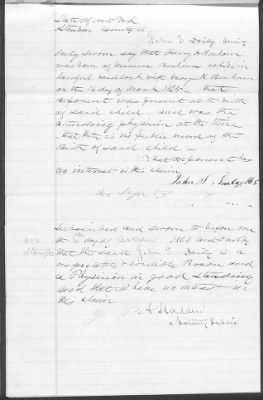 State of New York
Steuben County ss
John S. Daily being
duly sworn say that Harry H Benham
was born of Benham while in
lawful wedlock with George H Benham
on the 16 day of March 1865 that
deponent was present at the birth
of said child and was the
attending physician at the time
that there is no public record of the
birth of said child
That deponent has
no interest in this claim
John S. Daily M.D.
Subscribed and sworn to before me
this 6 day of 1866 and I certify
that the said John S. Daily is a
respectable & credible Person and
a Physician in good standing
and that I have no interest in
this claim
Notary Public